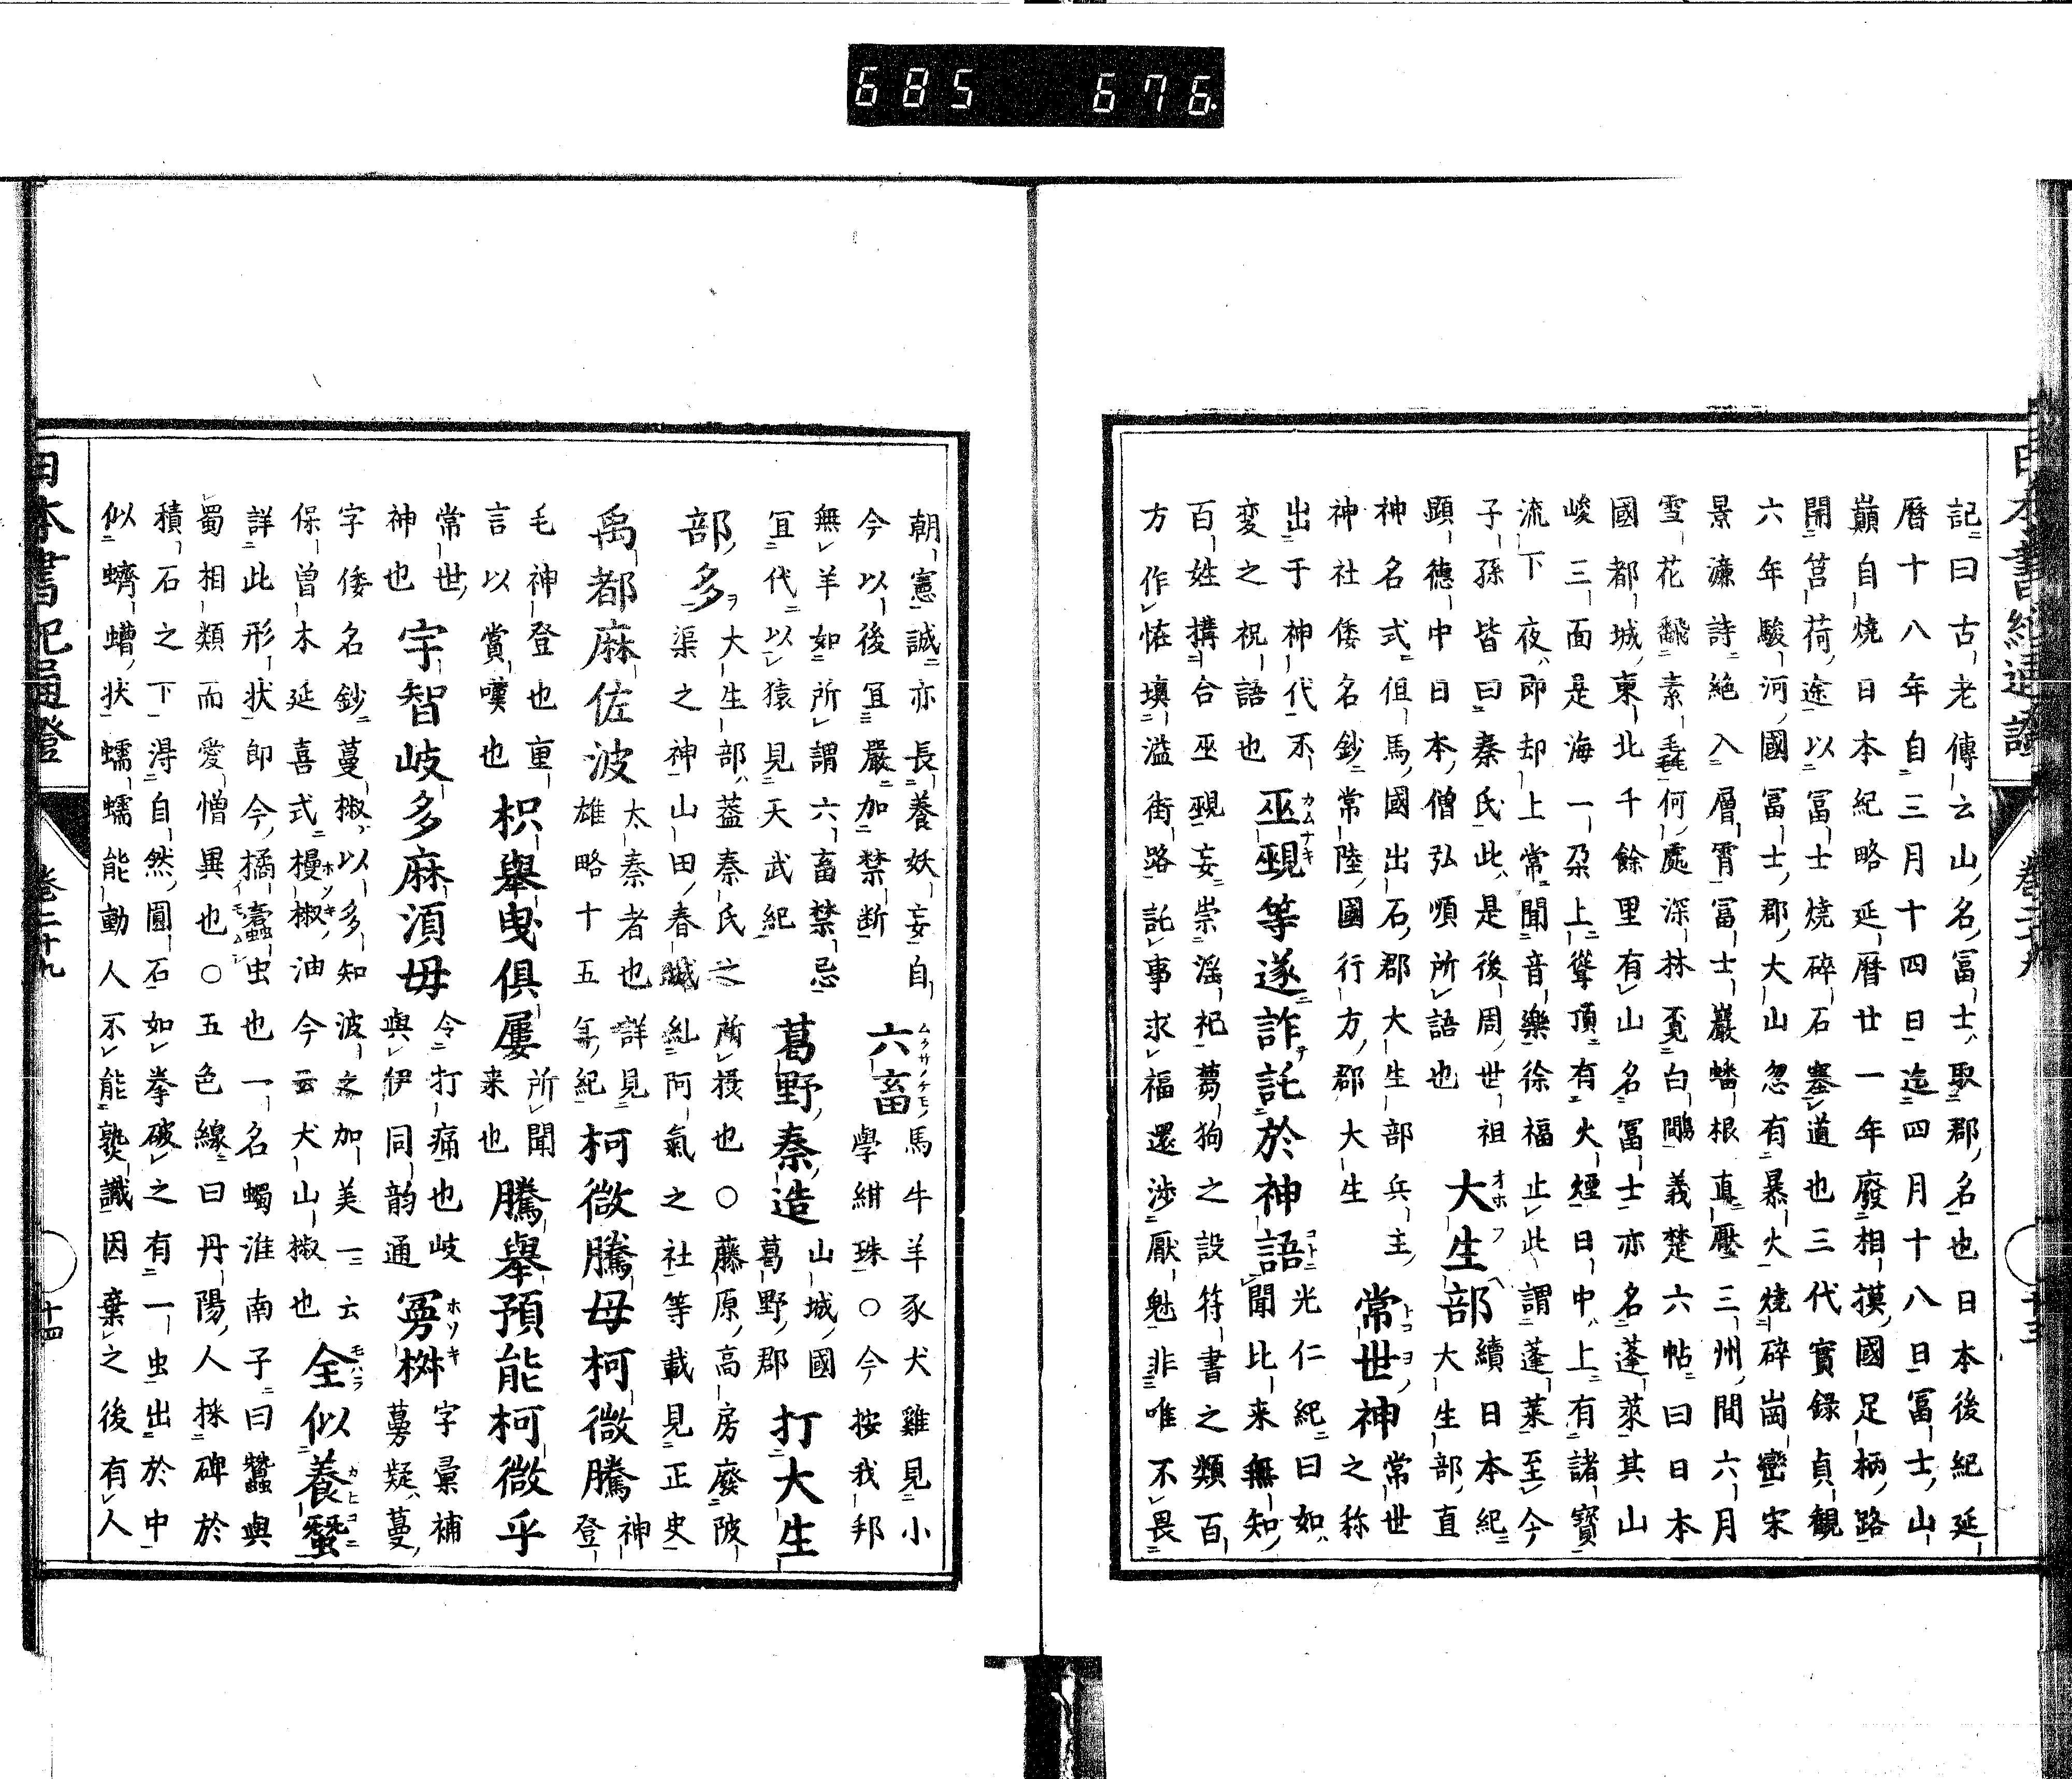 685 676
日本書紀通證
卷二十九
十三
記曰古老傳云山名冨士取郡名也日本後紀延
曆十八年自三月十四日迄四月十八日冨士山
巓自燒日本紀略延曆廿一年廢相摸國足柄路
開筥荷途以冨士燒碎石塞道也三代實錄貞觀
六年駿河國冨士郡大山忽有暴火燒碎崗巒宋
景濂詩絶入層霄冨士巖蟠根直壓三州間六月
雪花飜素毳何處深林覓白鷴義楚六帖曰日本
國都城東北千餘里有山名冨士亦名蓬萊其山
峻三面是海一朶上聳頂有火煙日中上有諸寶
流下夜即却上常聞音樂徐福止此謂蓬萊至今
子孫皆曰秦氏此是後周世祖
顕德中日本僧弘順所語也
大生部
オホフヘ
續日本紀
大生部直
神名式但馬國出石郡大生部兵主
神社倭名鈔常陸國行方郡大生
常世神
トコヨ
常世
之称
出于神代不
変之祝語也
巫覡等遂詐託於神語
カムナキ
コトニ
光仁紀曰如
聞比来無知
百姓搆合巫覡妄崇滛祀蒭狗之設符書之類百
方作恠塡溢街路託事求福還渉厭魅非唯不畏
朝憲誠亦長養妖妄自
今以後冝嚴加禁断
六畜
ムクサノケモノ
馬牛羊豕犬雞見小
學紺珠○今按我邦
無羊如所謂六畜禁忌
冝代以猿見天武紀
葛野秦造
山城國
葛野郡
打大生
部多
大生部蓋秦氏之所摂也○藤原高房廢陂
渠之神山田春城糺阿氣之社等載見正史
禹都麻佐波
太秦者也詳見
雄略十五年紀
柯微騰母柯微騰
神
登
毛神登也重
言以賞嘆也
枳擧曳俱屢
所聞
来也
騰擧預能柯微乎
常世
神也
宇智岐多麻湏毋
令打痛也岐
與伊同韵通
蔓椒
ホソキ
字彙補
蔓疑蔓
字倭名鈔蔓椒以多知波之加美一云
保曽木延喜式榠椒油今云犬山椒也
全似養蠶
モハラ
カヒコニ
詳此形状即今橘蠹虫也一名蠋淮南子曰蠶與
蜀相類而愛憎異也○五色線曰丹陽人採碑於
積石之下淂自然圓石如拳破之有一虫出於中
似蠐螬状蠕蠕能動人不能孰識因棄之後有人
日本書紀通證
卷二十九
十四